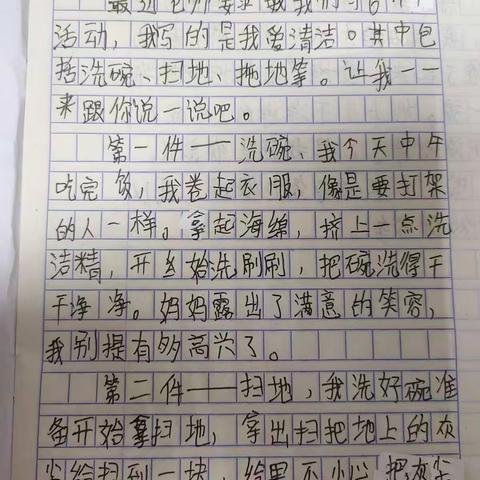 最近老师要求我们
活动，我写的是我爱清洁。其中包
括洗碗、扫地、拖地等。让我一一
来跟你说一说吧。
第一件——洗碗、我今天中午
吃完饭，我卷起衣服，像是要打架
的人一样。拿起海绵，挤上一点洗
洁精，开始洗刷刷，把碗洗得干
干净净。妈妈露出了满意的笑容，
我别提有多高兴了。
第二件——扫地，我洗好碗准
备开始拿扫地，拿出扫把地上的灰
尘给扫到一块，结果不小心把灰尘